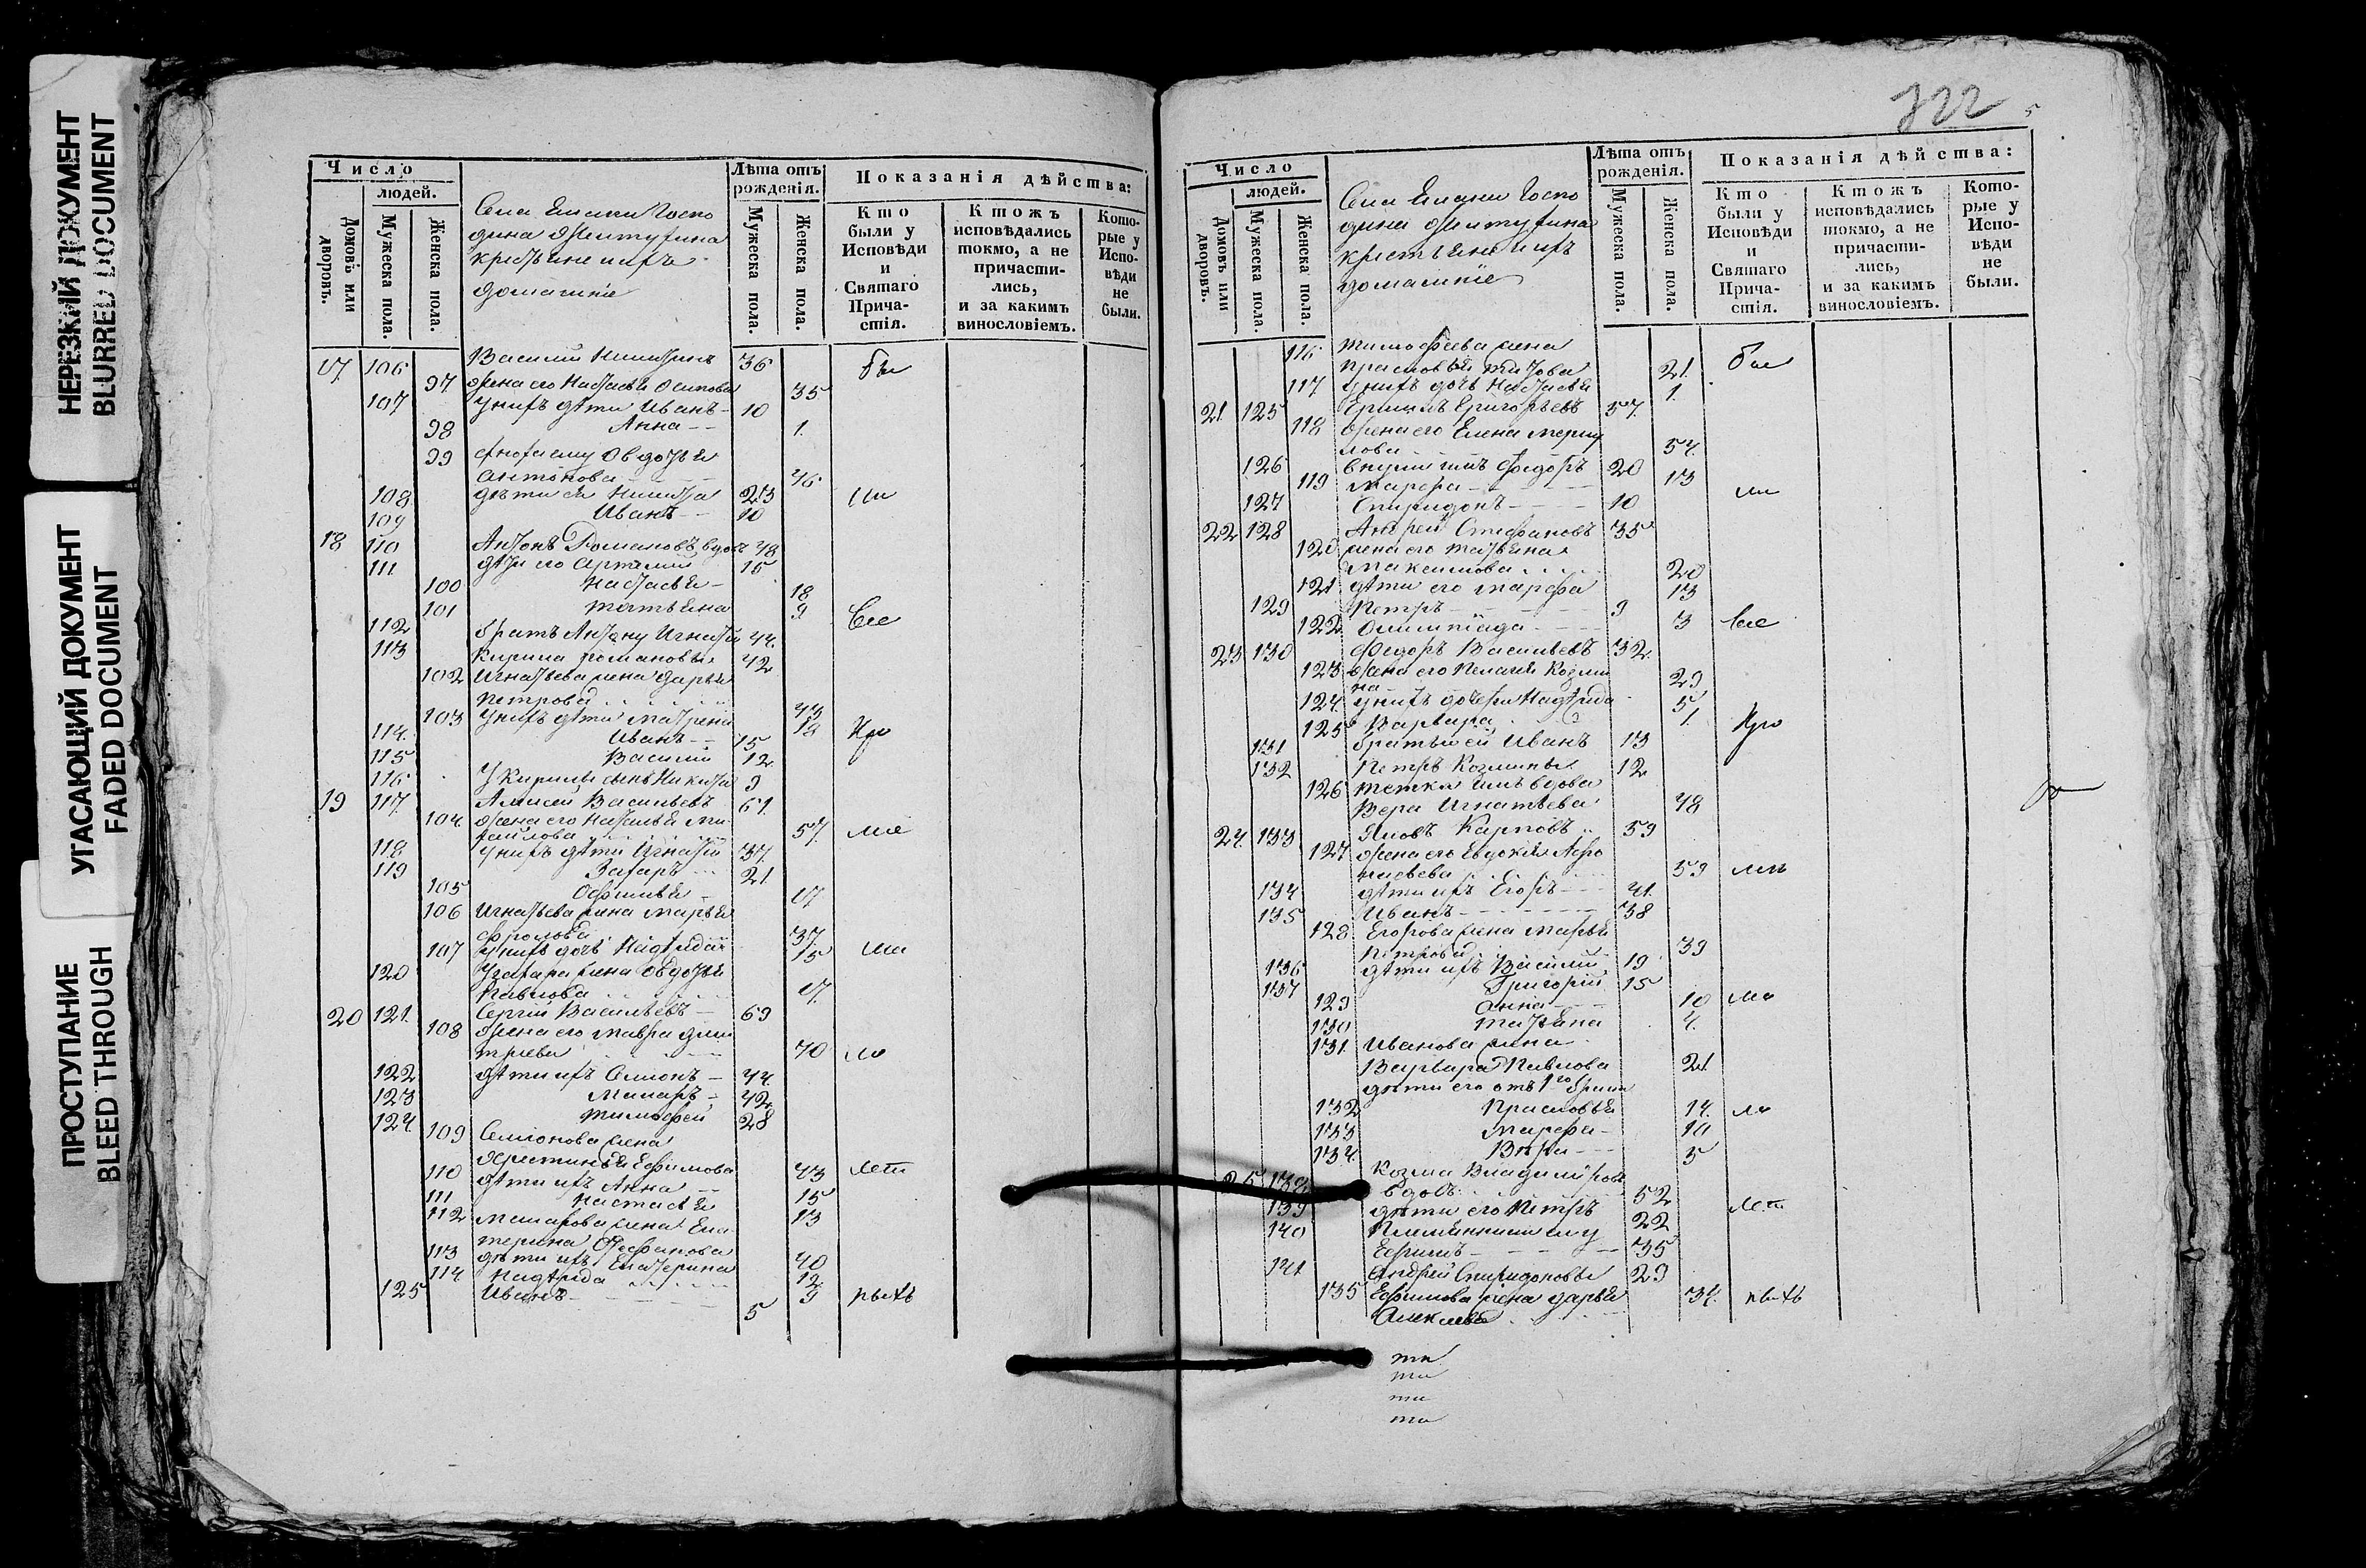 НЕРЕЗКИЙ ДОКУМЕНТ
BLURRED DOCUMENT
УГАСАЮЩИЙ ДОКУМЕНТ
FADED DOCUMENT
ПРОСТУПАНИЕ
BLEED THROUGH
Число
людей.
Домовъ или дворовъ.
Мужеска пола.
Женска пола.
Села Госпо
дина
крестьяне и ихъ
домашніе
Лѣта отъ рожденія.
Мужеска пола.
Женска пола.
Показанія дѣйства:
Кто были у Исповѣди и Святаго Причастія.
Ктожъ исповѣдались токмо, а не причастились, и за какимъ винословіемъ.
Которые у Исповѣди не были.
17 106 Василій Никитинъ 36
97 жена его Настасья Осипова 35
107 у нихъ дѣти Иванъ 10
98 Анна 1
99 сноха ему Авдотья
Антонова 46
108 дѣти ея Никита 23
109 Иванъ 10
18 110 Антонъ Романовъ вдовъ 48
111 дѣти его Артемій 15
100 Настасья 18
101 Татьяна 9 Все
112 братъ Антону Игнатій 44
113 Кирила Романовы 42
102 Игнатьева жена Дарья
Петрова 43
103 у нихъ дѣти Матрена 18
114 Иванъ 15
115 Василій 12
116 У Кирилы сынъ Никита 9
19 117 Алексей Васильевъ 61
104 жена его Наталья Ми
хайлова 57
118 у нихъ дѣти Игнатій 37
119 Захаръ 21
105 Офимья 17
106 Игнатьева жена Марья
Фролова 37
107 у нихъ дочь Надежда 15
120 У Захара жена Овдотья
Павлова 17
20 121 Сергій Васильевъ 69
108 жена его Мавра Дми
тріева 70
122 дѣти ихъ Семионъ 44
123 Макаръ 42
124 Тимофей 28
109 Семионова жена
Христинья Ефимова 43 лѣт
110 дѣти ихъ Анна 15
111 Настасья 13
112 Макарова жена Ека
терина Стефанова 40
113 дѣти ихъ Екатерина 12
114 Надежда 3
125 Иванъ 5
722
Число
людей.
Домовъ или дворовъ.
Мужеска пола.
Женска пола.
Села Госпо
дина
крестьяне и ихъ
домашніе
Лѣта отъ рожденія.
Мужеска пола.
Женска пола.
Показанія дѣйства:
Кто были у Исповѣди и Святаго Причастія.
Ктожъ исповѣдались токмо, а не причастились, и за какимъ винословіемъ.
Которые у Исповѣди не были.
116 Тимофеева жена
Прасковья Титова 21
117 у нихъ дочь Настасья 1
21 125 Григорьевъ 57
118 жена его Елена
54
126 Федоръ 20
119 Марфа 13
127 Спиридонъ 10
22 128 Андрей Стефановъ 35
120 жена его Татьяна
Максимова 20
121 дѣти его Марфа 13
129 Петръ 9
122 Олимпіада 3 все
23 130 Федоръ Васильевъ 32
123 жена его Пелагея Козми
на 29
124 у нихъ дочери Надежда 5
125 Варвара 1
131 братья ей Иванъ 13
132 Петръ Козмины 12
126 тетка имъ вдова
Вера Игнатьева 48
24 133 Яковъ Карповъ 59
127 жена его Евдокия Афо
насьева 59
134 дѣти ихъ Егоръ 41
135 Иванъ 38
128 Егорова жена Марья
Петрова 39
136 дѣти ихъ Василій 19
137 Григорій 15
129 Анна 10
130 Татьяна 4
131 Иванова жена
Варвара Павлова 21
дѣти его отъ 1го брака
132 Прасковья 14
133 Марфа 10
134 Вѣра 5
25 138 Козма Владиміровъ
вдовъ 52
139 дѣти его Петръ 22
140 Племянники ему
Ефимъ 35
141 Андрей Спиридоновы 29
135 Ефимова жена Дарья 34
Алексѣева